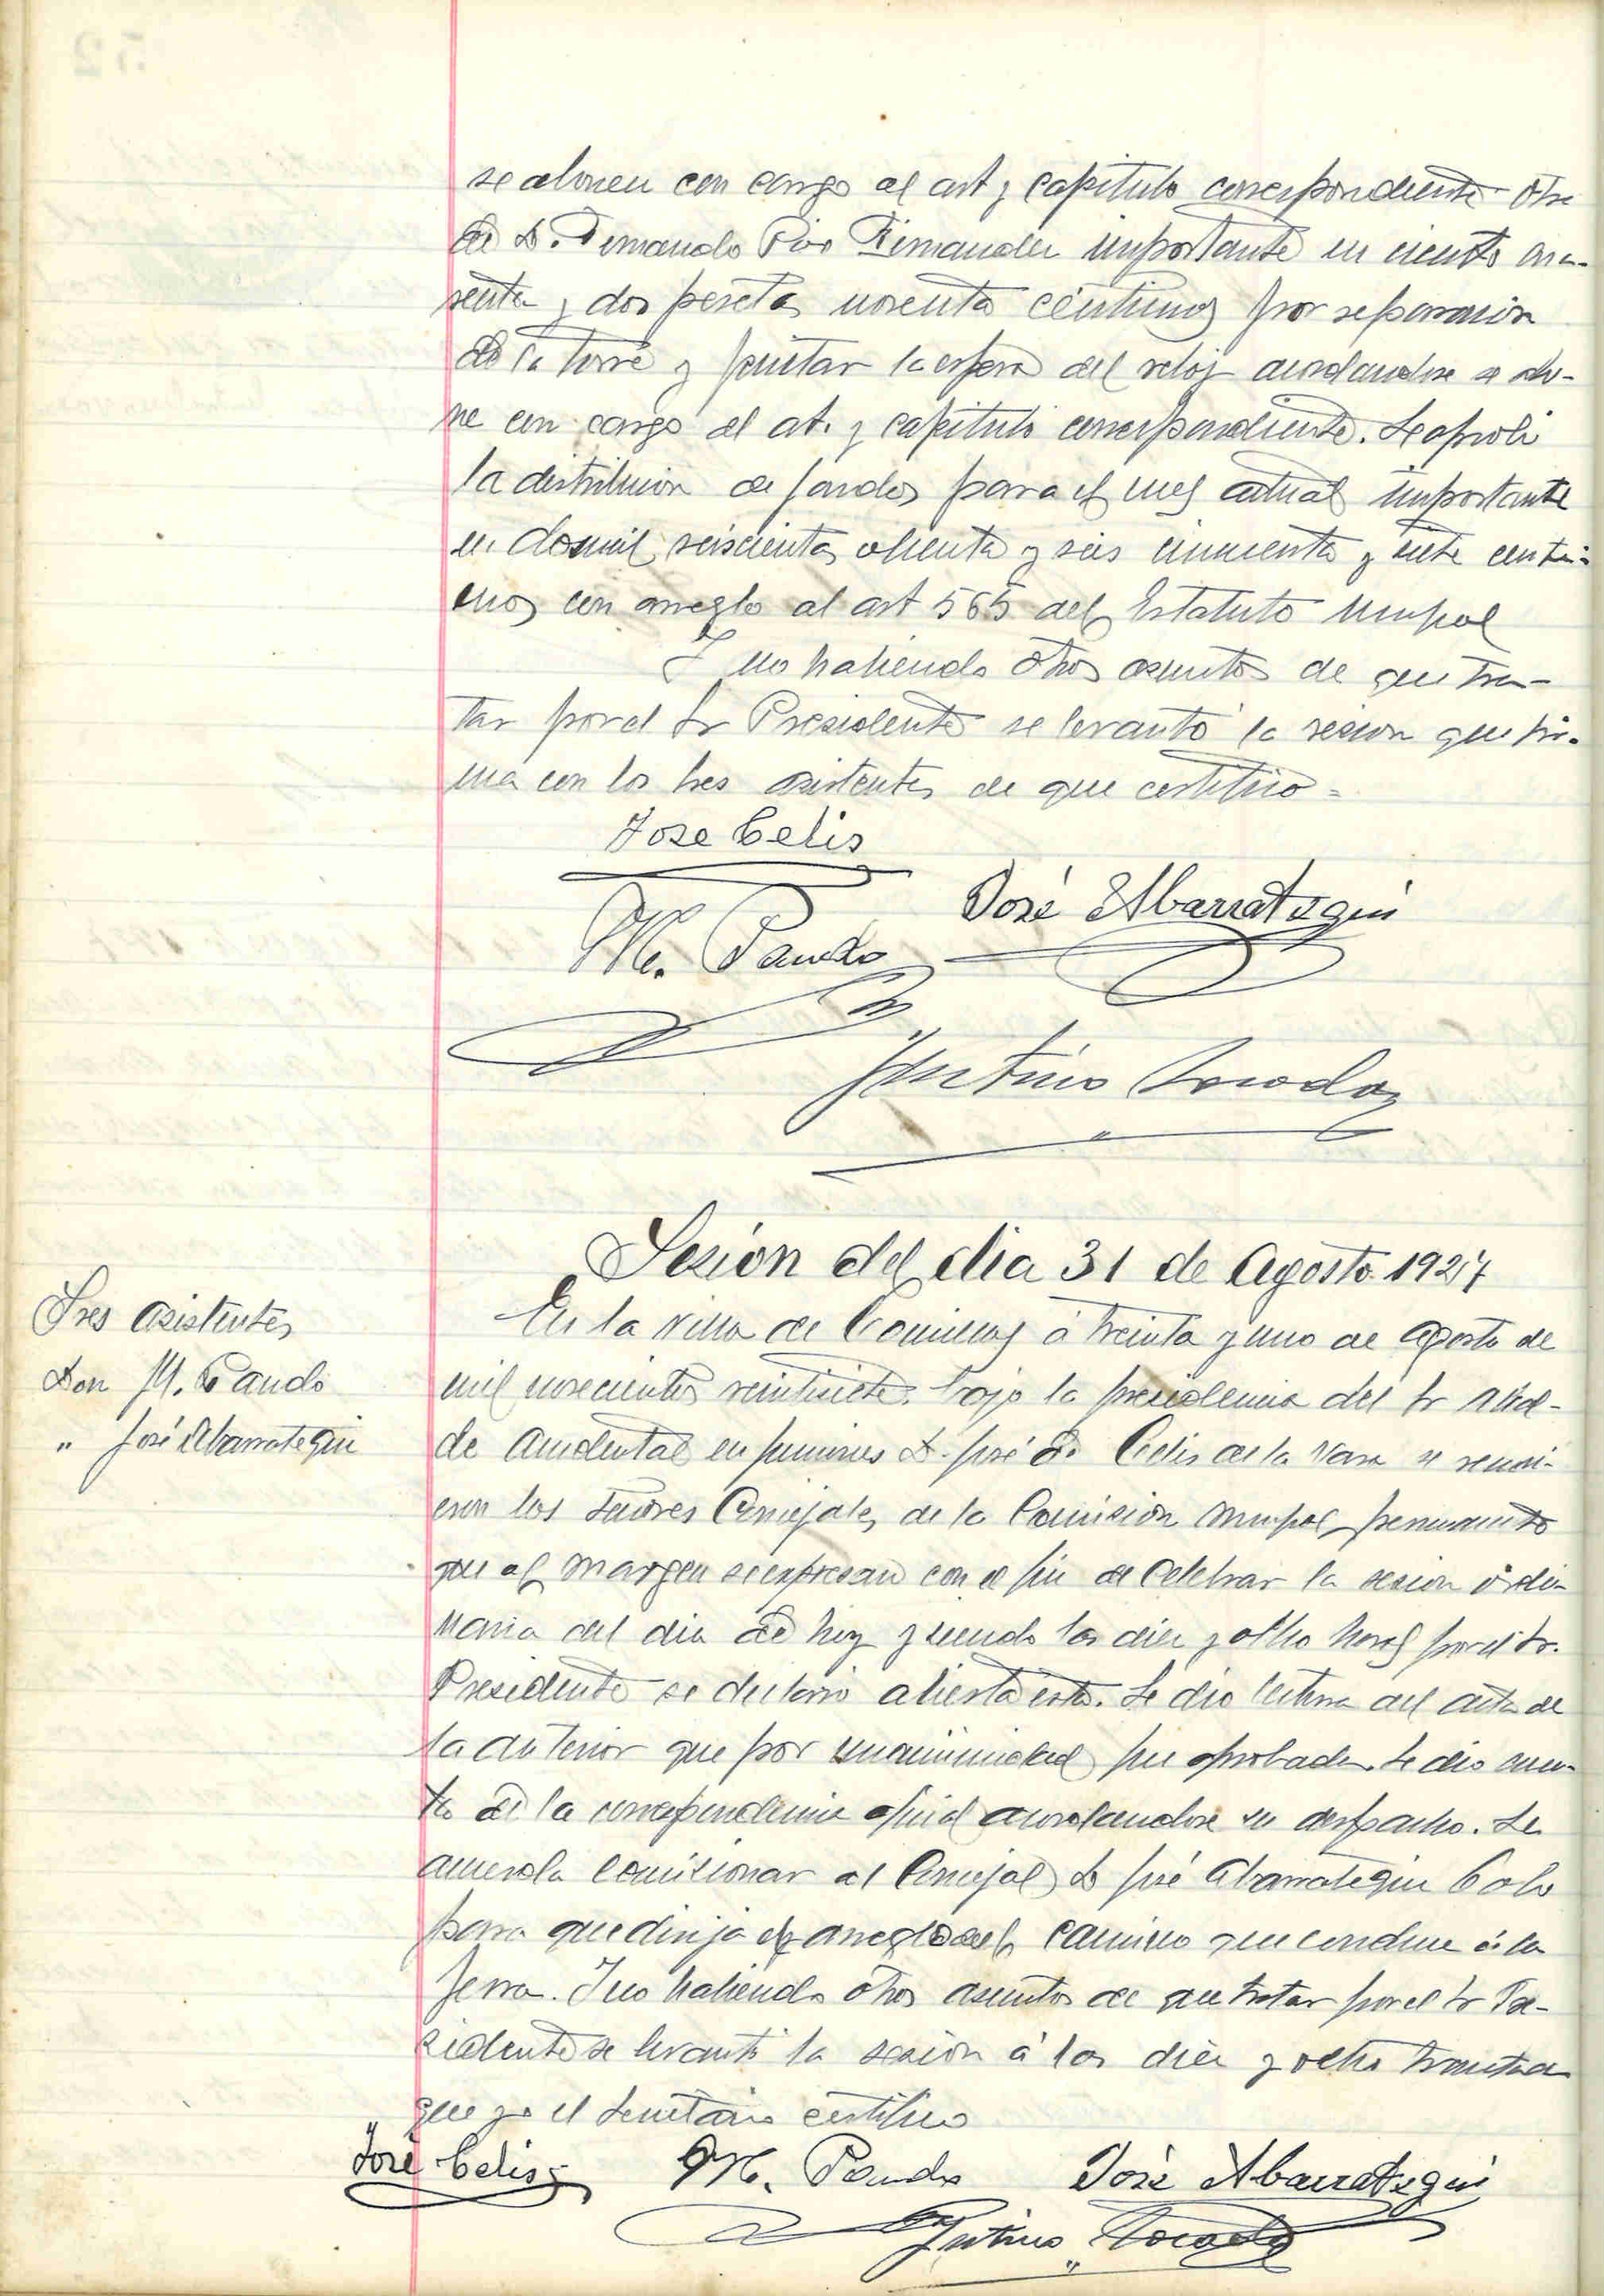 se abonen con cargo al art y capitulo correspondiente Otra
de D. Fernando Pio Fernandez importante en ciento cua-
renta y dos pesetas noventa céntimos por reparacion
de la torre y pintar la esfera del reloj acordandose se abo-
ne con cargo al at. y capitulo correspondiente. Se aprobó
la distribucion de fondos para el mes actual importante
en dosmil seiscientas ochenta y seis cincuenta y siete centi-
mos con arreglo al art 565 del Estatuto Munpal
Y no habiendo otros asuntos de que tra-
tar por el Sr Presidente se levantó la sesion que fir-
ma con los sres asistentes de que certifico =
Jose Celis
José Abarrategui
M. Pando
Sesion del dia 31 de Agosto 1927
Sres asistentes
Don M. Pando
" José Abarrategui
En la villa de Comillas á treinta y uno de Agosto de
mil novecientos veintisiete. bajo la presidencia del Sr Alcal-
de accidental en funciones D. José de Celis de la Vara se reuni-
eron los Señores Concejales de la Comision Munpal permanente
que al margen se expresan con el fin de Celebrar la sesion ordi-
naria del dia de hoy y siendo las diez y ocho horas por el Sr.
Presidente se declaró abierta esta. Se dio lectura del acta de
la anterior que por unanimidad fue aprobada. Se dio cuen-
ta de la correspondencia oficial acordandose su despacho. Se
acuerda comisionar al Concejal D José Abarrategui Cobo
para que dirija el arreglo del camino que conduce á la
. Y no habiendo otros asuntos de que tratar por el Sr Pre-
sidente se levantó la sesion á las diez y ocho treinta de
que yo el Secretario certifico
José Celis M. Pando José Abarrategui